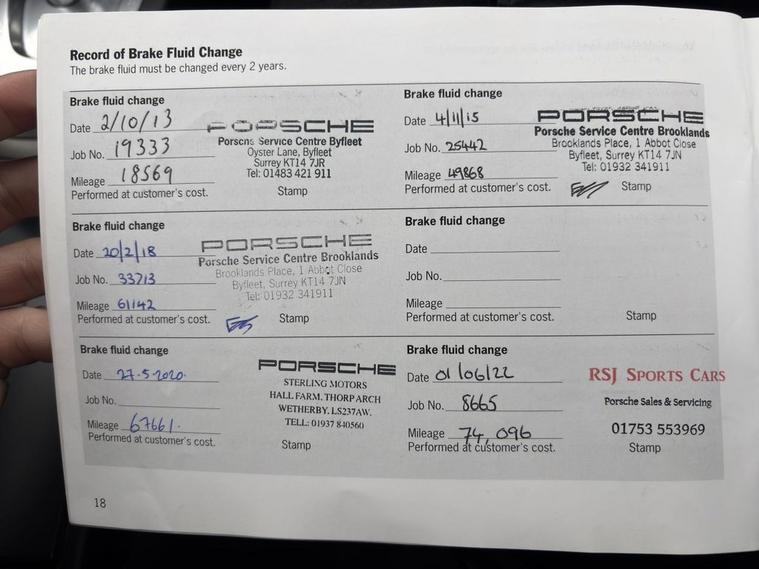 Record of Brake Fluid Change
The brake fluid must be changed every 2 years.
Brake fluid change
Date 2/10/13
Job No. 19333
Mileage 18569
Performed at customer's cost.
PORSCHE
Porsche Service Centre Byfleet
Oyster Lane, Byfleet
Surrey KT14 7JR
Tel: 01483 421 911
Stamp
Brake fluid change
Date 4/11/15
Job No. 25442
Mileage 49868
Performed at customer's cost.
PORSCHE
Porsche Service Centre Brooklands
Brooklands Place, 1 Abbot Close
Byfleet, Surrey KT14 7JN
Tel: 01932 341911
Stamp
Brake fluid change
Date 20/2/18
Job No. 33713
Mileage 61142
Performed at customer's cost.
PORSCHE
Porsche Service Centre Brooklands
Brooklands Place, 1 Abbot Close
Byfleet, Surrey KT14 7JN
Tel: 01932 341911
Stamp
Brake fluid change
Date
Job No.
Mileage
Performed at customer's cost.
Stamp
Brake fluid change
Date 27.5.2020.
Job No.
Mileage 67661.
Performed at customer's cost.
PORSCHE
STERLING MOTORS
HALL FARM. THORP ARCH
WETHERBY. LS237AW.
TELL: 01937 840560
Stamp
Brake fluid change
Date 01/06/22
Job No. 8665
Mileage 74,096
Performed at customer's cost.
RSJ SPORTS CARS
Porsche Sales & Servicing
01753 553969
Stamp
18